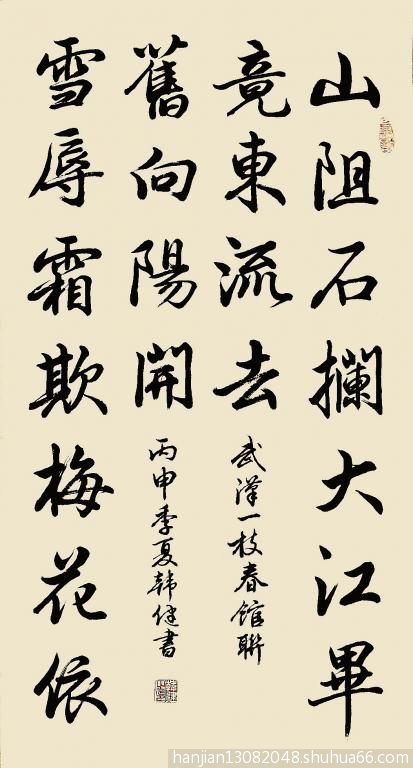 山阻石攔大江畢
竟東流去
武漢一枝春館聯
雪辱霜欺梅花依
舊向陽開
丙申季夏韓健書
hanjian13082048.shuhua66.com